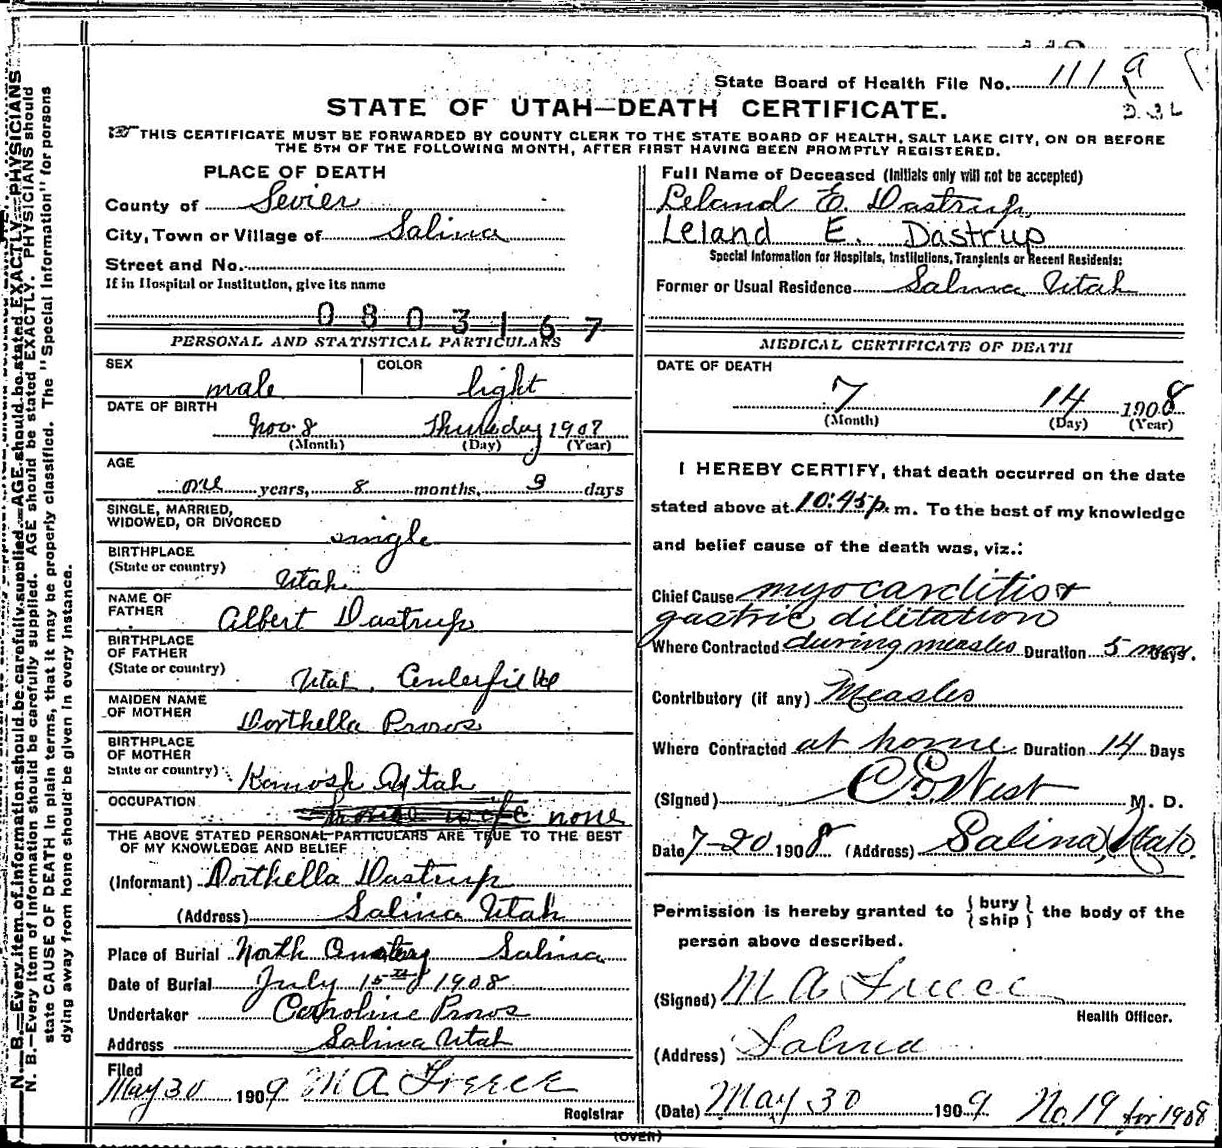 State Board of Health File No. 111 a
232
STATE OF UTAH—DEATH CERTIFICATE.
THIS CERTIFICATE MUST BE FORWARDED BY COUNTY CLERK TO THE STATE BOARD OF HEALTH, SALT LAKE CITY, ON OR BEFORE
THE 5TH OF THE FOLLOWING MONTH, AFTER FIRST HAVING BEEN PROMPTLY REGISTERED.
PLACE OF DEATH
County of Sevier
City, Town or Village of Salina
Street and No.
If in Hospital or Institution, give its name
0803167
PERSONAL AND STATISTICAL PARTICULARS
SEX male COLOR light
DATE OF BIRTH
Nov. 8 Thursday 1907
(Month) (Day) (Year)
AGE
one years, 8 months, 9 days
SINGLE, MARRIED,
WIDOWED, OR DIVORCED single
BIRTHPLACE
(State or country) Utah
NAME OF
FATHER Albert Dastrup
BIRTHPLACE
OF FATHER
(State or country) Utah. Centerfield
MAIDEN NAME
OF MOTHER Dorthella Prows
BIRTHPLACE
OF MOTHER
State or country) Kanosh Utah
OCCUPATION none
THE ABOVE STATED PERSONAL PARTICULARS ARE TRUE TO THE BEST
OF MY KNOWLEDGE AND BELIEF
(Informant) Dorthella Dastrup
(Address) Salina Utah
Place of Burial North Cemetery Salina
Date of Burial July 15th 1908
Undertaker Caroline Prows
Address Salina Utah
Filed
May 30 1909 M A Freece
Registrar
Full Name of Deceased (Initials only will not be accepted)
Leland E Dastrup
Leland E. Dastrup
Special Information for Hospitals, Institutions, Transients or Recent Residents:
Former or Usual Residence Salina Utah
MEDICAL CERTIFICATE OF DEATH
DATE OF DEATH
7 14 1908
(Month) (Day) (Year)
I HEREBY CERTIFY, that death occurred on the date
stated above at 10:45 p. m. To the best of my knowledge
and belief cause of the death was, viz.:
Chief Cause myocarditis &
gastric dilitation
Where Contracted during measles Duration 5 Days.
Contributory (if any) Measles
Where Contracted at home Duration 14 Days
(Signed) West M. D.
Date 7-20 1908 (Address) Salina, Utah.
Permission is hereby granted to {bury
ship} the body of the
person above described.
(Signed) M A Freece
Health Officer.
(Address) Salina
(Date) May 30 1909 No. 19 for 1908
(OVER)
N. B.—Every item of information should be carefully supplied. AGE should be stated EXACTLY. PHYSICIANS should
state CAUSE OF DEATH in plain terms, that it may be properly classified. The "Special Information" for persons
dying away from home should be given in every instance.